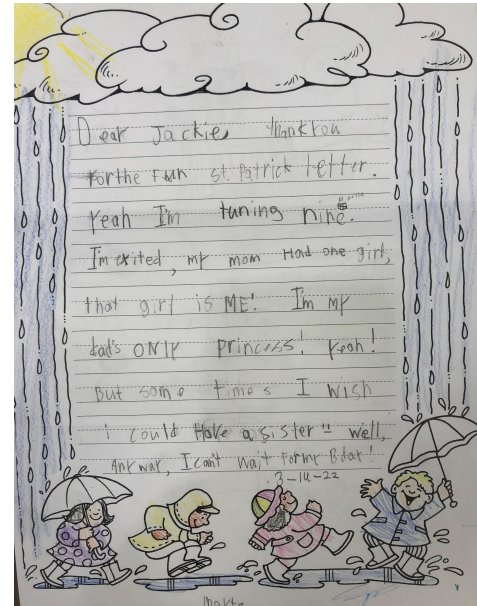 Dear Jackie, thank You
for the fun St. Patrick letter.
Yeah I'm tuning nine.
I'm exited, my mom Had one girl,
that girl is ME! I'm my
dad's ONLY princess! Yeah!
But some times I wish
i could Have a sister" well,
Any way, I can't wait for my Bday!
3-14-22